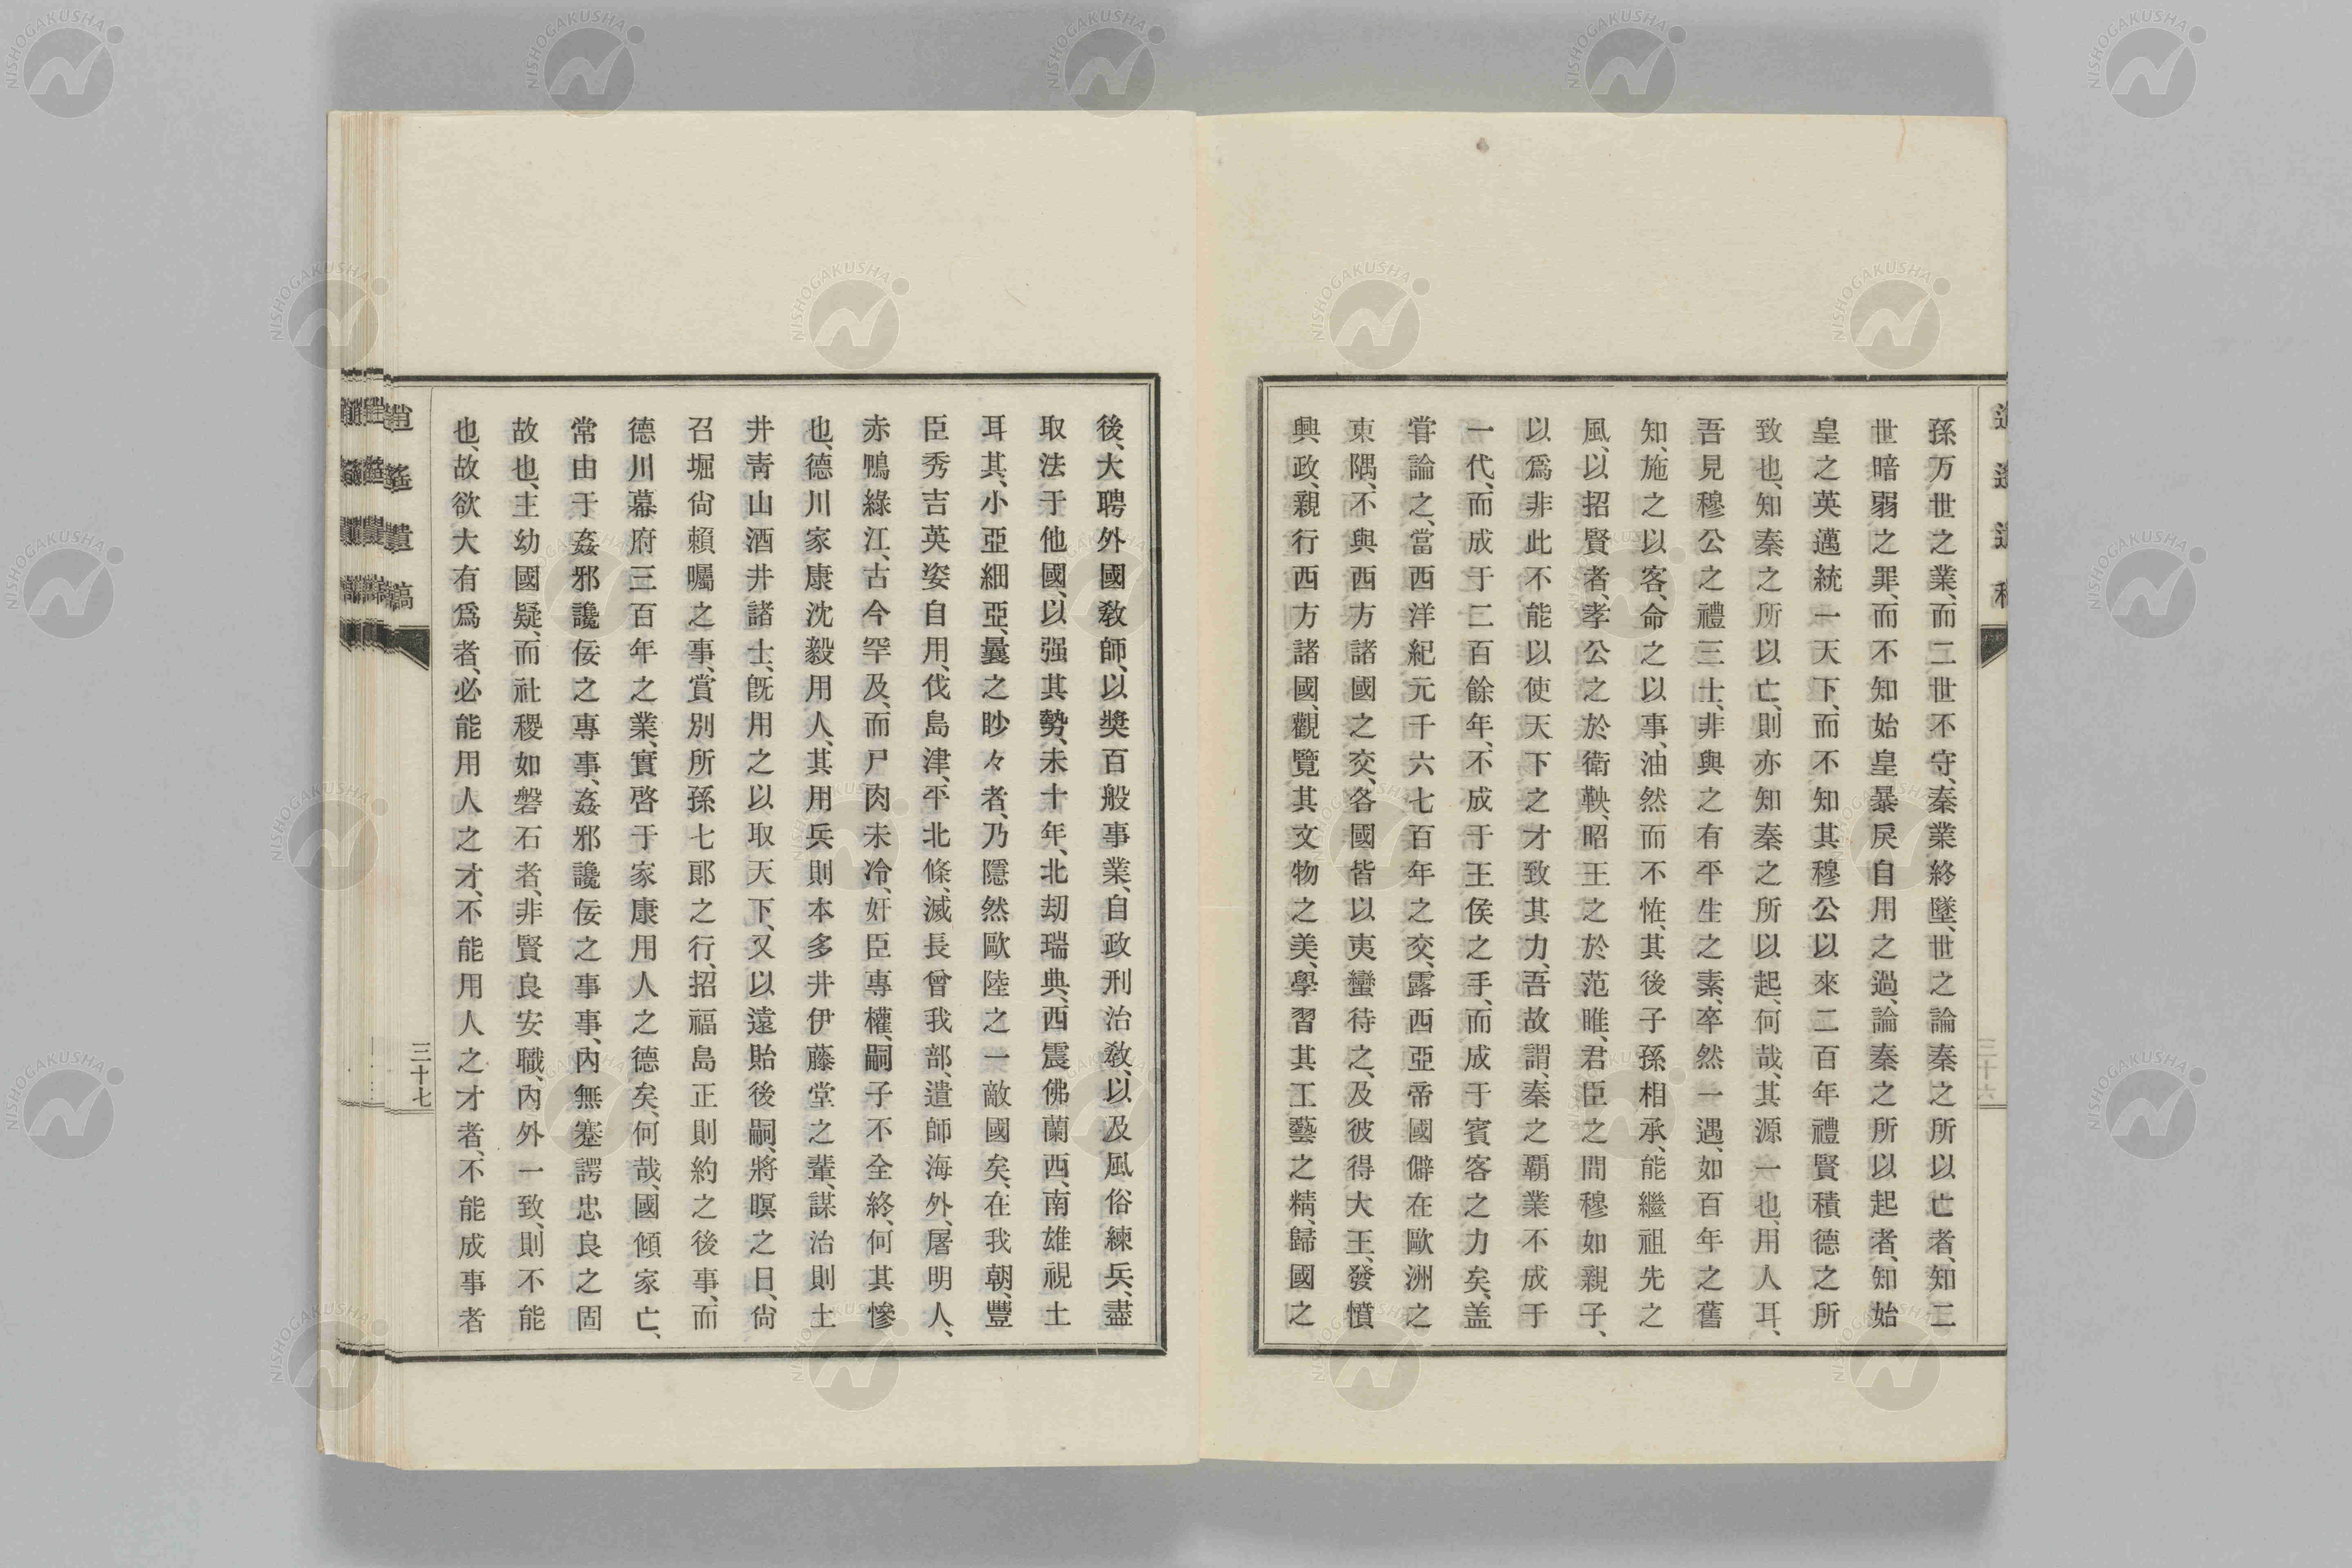 孫万世之業、而二世不守、秦業終墜、世之論秦之所以亡者、知二
世暗弱之罪、而不知始皇暴戾自用之過、論秦之所以起者、知始
皇之英邁統一天下、而不知其穆公以來二百年禮賢積德之所
致也、知秦之所以亡、則亦知秦之所以起、何哉、其源一也、用人耳、
吾見穆公之禮三士、非與之有平生之素、卒然一遇、如百年之舊
知、施之以客、命之以事、油然而不恠、其後子孫相承、能繼祖先之
風、以招賢者、孝公之於衛鞅、昭王之於范睢、君臣之間穆如親子、
以爲非此不能以使天下之才致其力、吾故謂、秦之覇業不成于
一代、而成于二百餘年、不成于王侯之手、而成于賓客之力矣、盖
甞論之、當西洋紀元千六七百年之交、露西亞帝國僻在歐洲之
東隅、不與西方諸國之交、各國皆以夷蠻待之、及彼得大王、發憤
興政、親行西方諸國、觀覽其文物之美、學習其工藝之精、歸國之
三十六
後、大聘外國敎師、以奬百般事業、自政刑治敎、以及風俗練兵、盡
取法于他國、以强其勢、未十年、北刧瑞典、西震佛蘭西、南雄視土
耳其、小亞細亞、曩之眇々者、乃隱然歐陸之一敵國矣、在我朝、豐
臣秀吉英姿自用、伐島津、平北條、滅長曾我部、遣師海外、屠明人、
赤鴨綠江、古今罕及、而尸肉未冷、奸臣專權、嗣子不全終、何其慘
也、德川家康沈毅用人、其用兵則本多井伊藤堂之輩、謀治則土
井靑山酒井諸士、旣用之以取天下、又以遠貽後嗣、將暝之日、尙
召堀尙賴囑之事、賞別所孫七郞之行、招福島正則約之後事、而
德川幕府三百年之業、實啓于家康用人之德矣、何哉、國傾家亡、
常由于姦邪讒佞之專事、姦邪讒佞之事事、內無蹇諤忠良之固
故也、主幼國疑、而社稷如磐石者、非賢良安職、內外一致、則不能
也、故欲大有爲者、必能用人之才、不能用人之才者、不能成事者
三十七